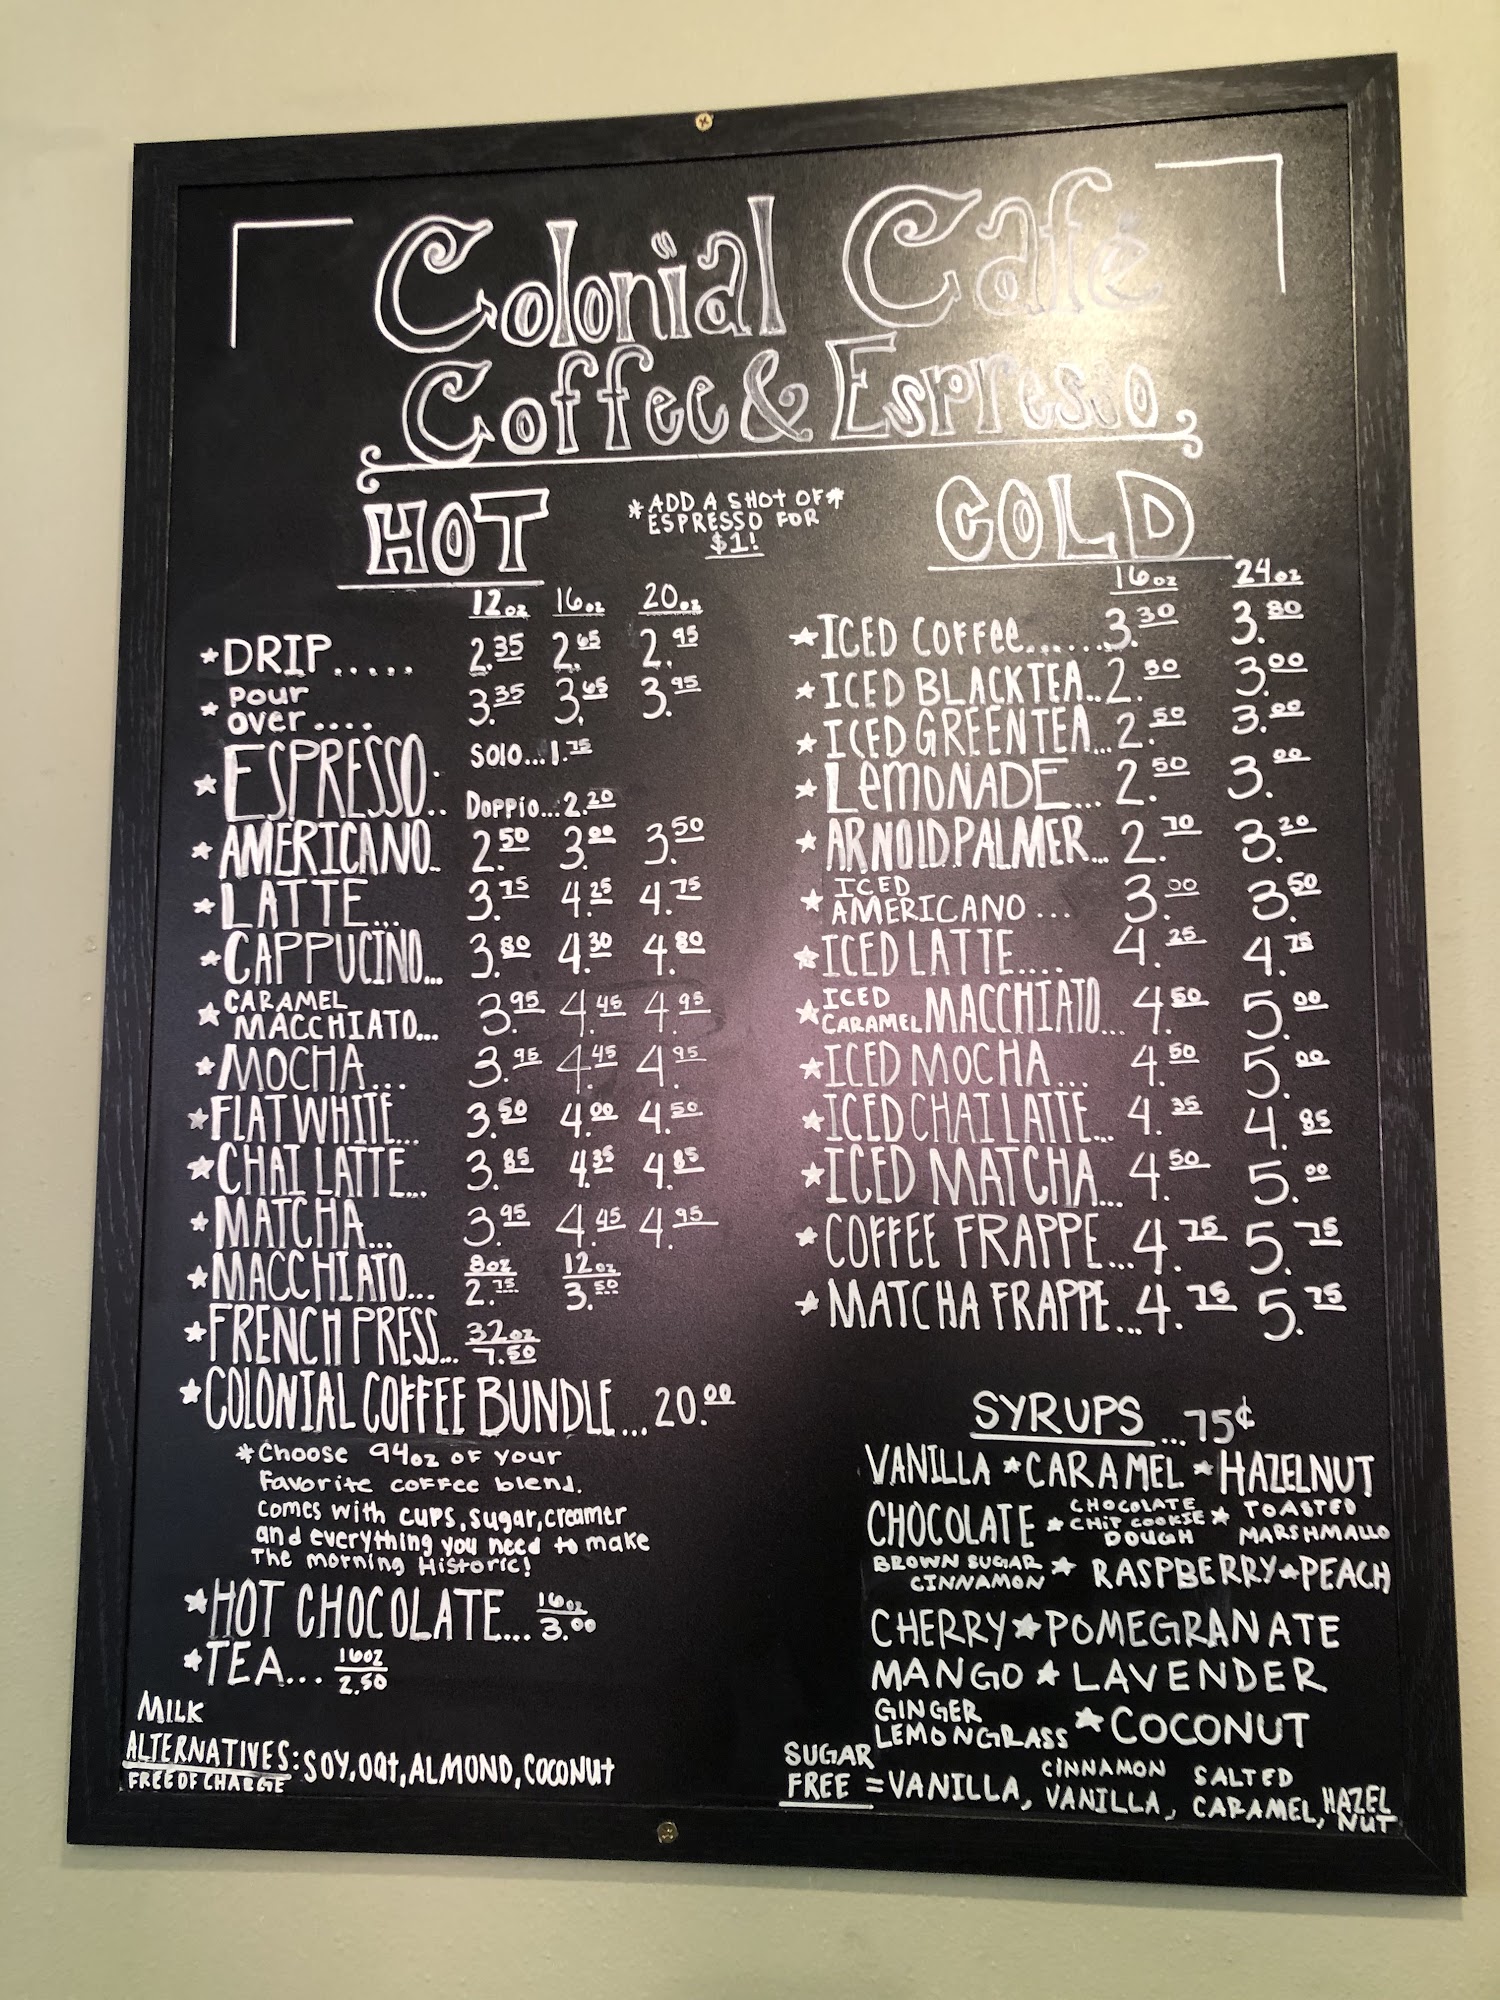 Colonial Café
Coffee & Espresso
HOT
*ADD A SHOT OF*
ESPRESSO FOR
$1!
12oz 16oz 20oz
*DRIP..... 2.35 2.65 2.95
*Pour
over.... 3.35 3.65 3.95
*ESPRESSO... Solo...1.75
Doppio...2.20
*AMERICANO.. 2.50 3.00 3.50
*LATTE... 3.75 4.25 4.75
*CAPPUCINO... 3.80 4.30 4.80
*CARAMEL
MACCHIATO... 3.95 4.45 4.95
*MOCHA... 3.95 4.45 4.95
*FLAT WHITE... 3.50 4.00 4.50
*CHAI LATTE... 3.85 4.35 4.85
*MATCHA... 3.95 4.45 4.95
8oz 12oz
*MACCHIATO... 2.75 3.50
*FRENCH PRESS... 32oz
7.50
*COLONIAL COFFEE BUNDLE...20.00
*Choose 94oz of your
favorite coffee blend.
comes with cups, sugar, creamer
and everything you need to make
The morning Historic!
*HOT CHOCOLATE... 16oz
3.00
*TEA... 16oz
2.50
MILK
ALTERNATIVES: SOY, Oat, ALMOND, COCONUt
FREE OF CHARGE
COLD
16oz 24oz
*ICED COFFee......3.30 3.80
*ICED BLACK TEA..2.50 3.00
*ICED GREEN TEA...2.50 3.00
*LEMONADE...2.50 3.00
*ARNOLD PALMER...2.70 3.20
*ICED
AMERICANO... 3.00 3.50
*ICED LATTE.... 4.25 4.75
*ICED
CARAMEL MACCHIATO... 4.50 5.00
*ICED MOCHA... 4.50 5.00
*ICED CHAI LATTE... 4.35 4.85
*ICED MATCHA... 4.50 5.00
*COFFEE FRAPPE...4.75 5.75
*MATCHA FRAPPE...4.75 5.75
SYRUPS...75¢
VANILLA*CARAMEL*HAZELNUT
CHOCOLATE*CHOCOLATE CHIP COOKIE DOUGH*TOASTED MARSHMALLO
BROWN SUGAR CINNAMON*RASPBERRY*PEACH
CHERRY*POMEGRANATE
MANGO*LAVENDER
GINGER LEMONGRASS*COCONUT
SUGAR FREE=VANILLA, CINNAMON VANILLA, SALTED CARAMEL, HAZEL NUT